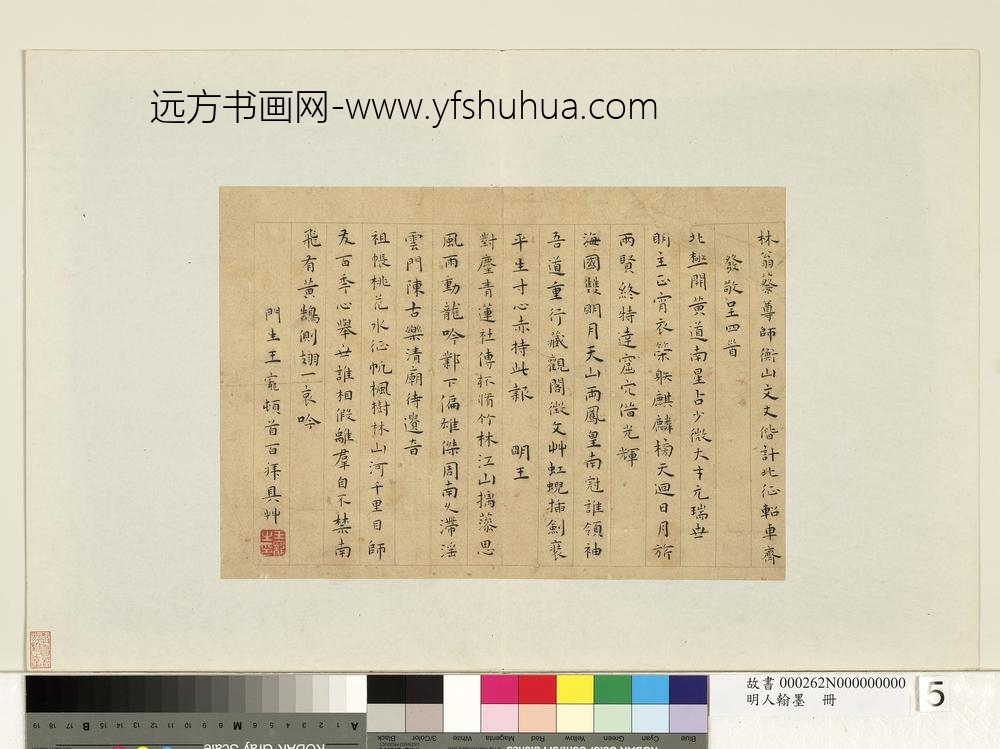 远方书画网-www.yfshuhua.com
林翁蔡尊師衡山文丈偕計北征軺車齊
發敬呈四首
北極開黃道南星占少微大才元瑞世
明主正宵衣策躰麒麟楊天迴日月旂
兩賢終特達窟穴借光輝
海國雙明月天山兩鳳皇南冠誰領袖
吾道重行藏觀閣徵文艸虹蜺捕劍裏
平生寸心赤持此報 明王
對塵青蓮社傳杯脩竹林江山摛藻思
風雨動龍吟鄴下偏雄傑周南久滯淫
雲門陳古樂清廟待遺音
祖帳桃花水征帆楓樹林山河千里目師
友百年心舉世誰相假離羣自不禁南
飛有黃鵠側翅一哀吟
門生王寵頓首百拜具艸
故書 000262N000000000
明人翰墨 冊
5
19 18 17 16 15 14 13 12 11 10 9 8 7 6 5 4 3 2 1
B M A
KODAK Gray Scale
Black 3/Color White Magenta Red Yellow Green Cyan Blue